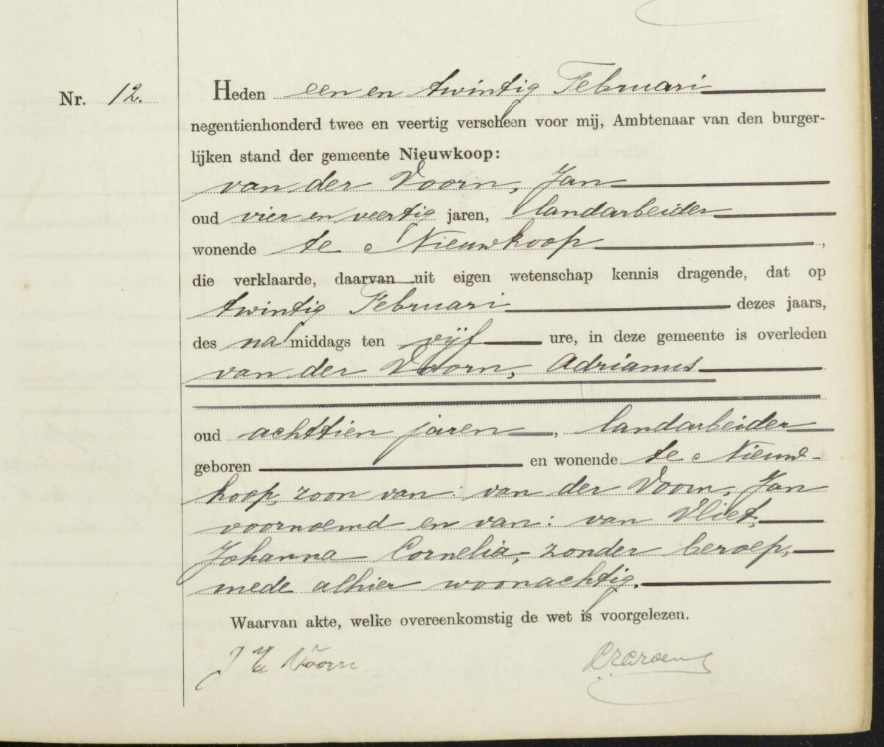 Nr. 12.
Heden een en twintig Februari
negentienhonderd twee en veertig verscheen voor mij, Ambtenaar van den burger-
lijken stand der gemeente Nieuwkoop:
van der Voorn, Jan
oud vier en veertig jaren, landarbeider
wonende te Nieuwkoop,
die verklaarde, daarvan uit eigen wetenschap kennis dragende, dat op
twintig Februari dezes jaars,
des na middags ten vijf ure, in deze gemeente is overleden
van der Voorn, Adrianus
oud achttien jaren, landarbeider
geboren en wonende te Nieuw-
koop, zoon van: van der Voorn, Jan
voornoemd en van: van Vliet,
Johanna Cornelia, zonder beroep,
mede alhier woonachtig.
Waarvan akte, welke overeenkomstig de wet is voorgelezen.
J Voorn